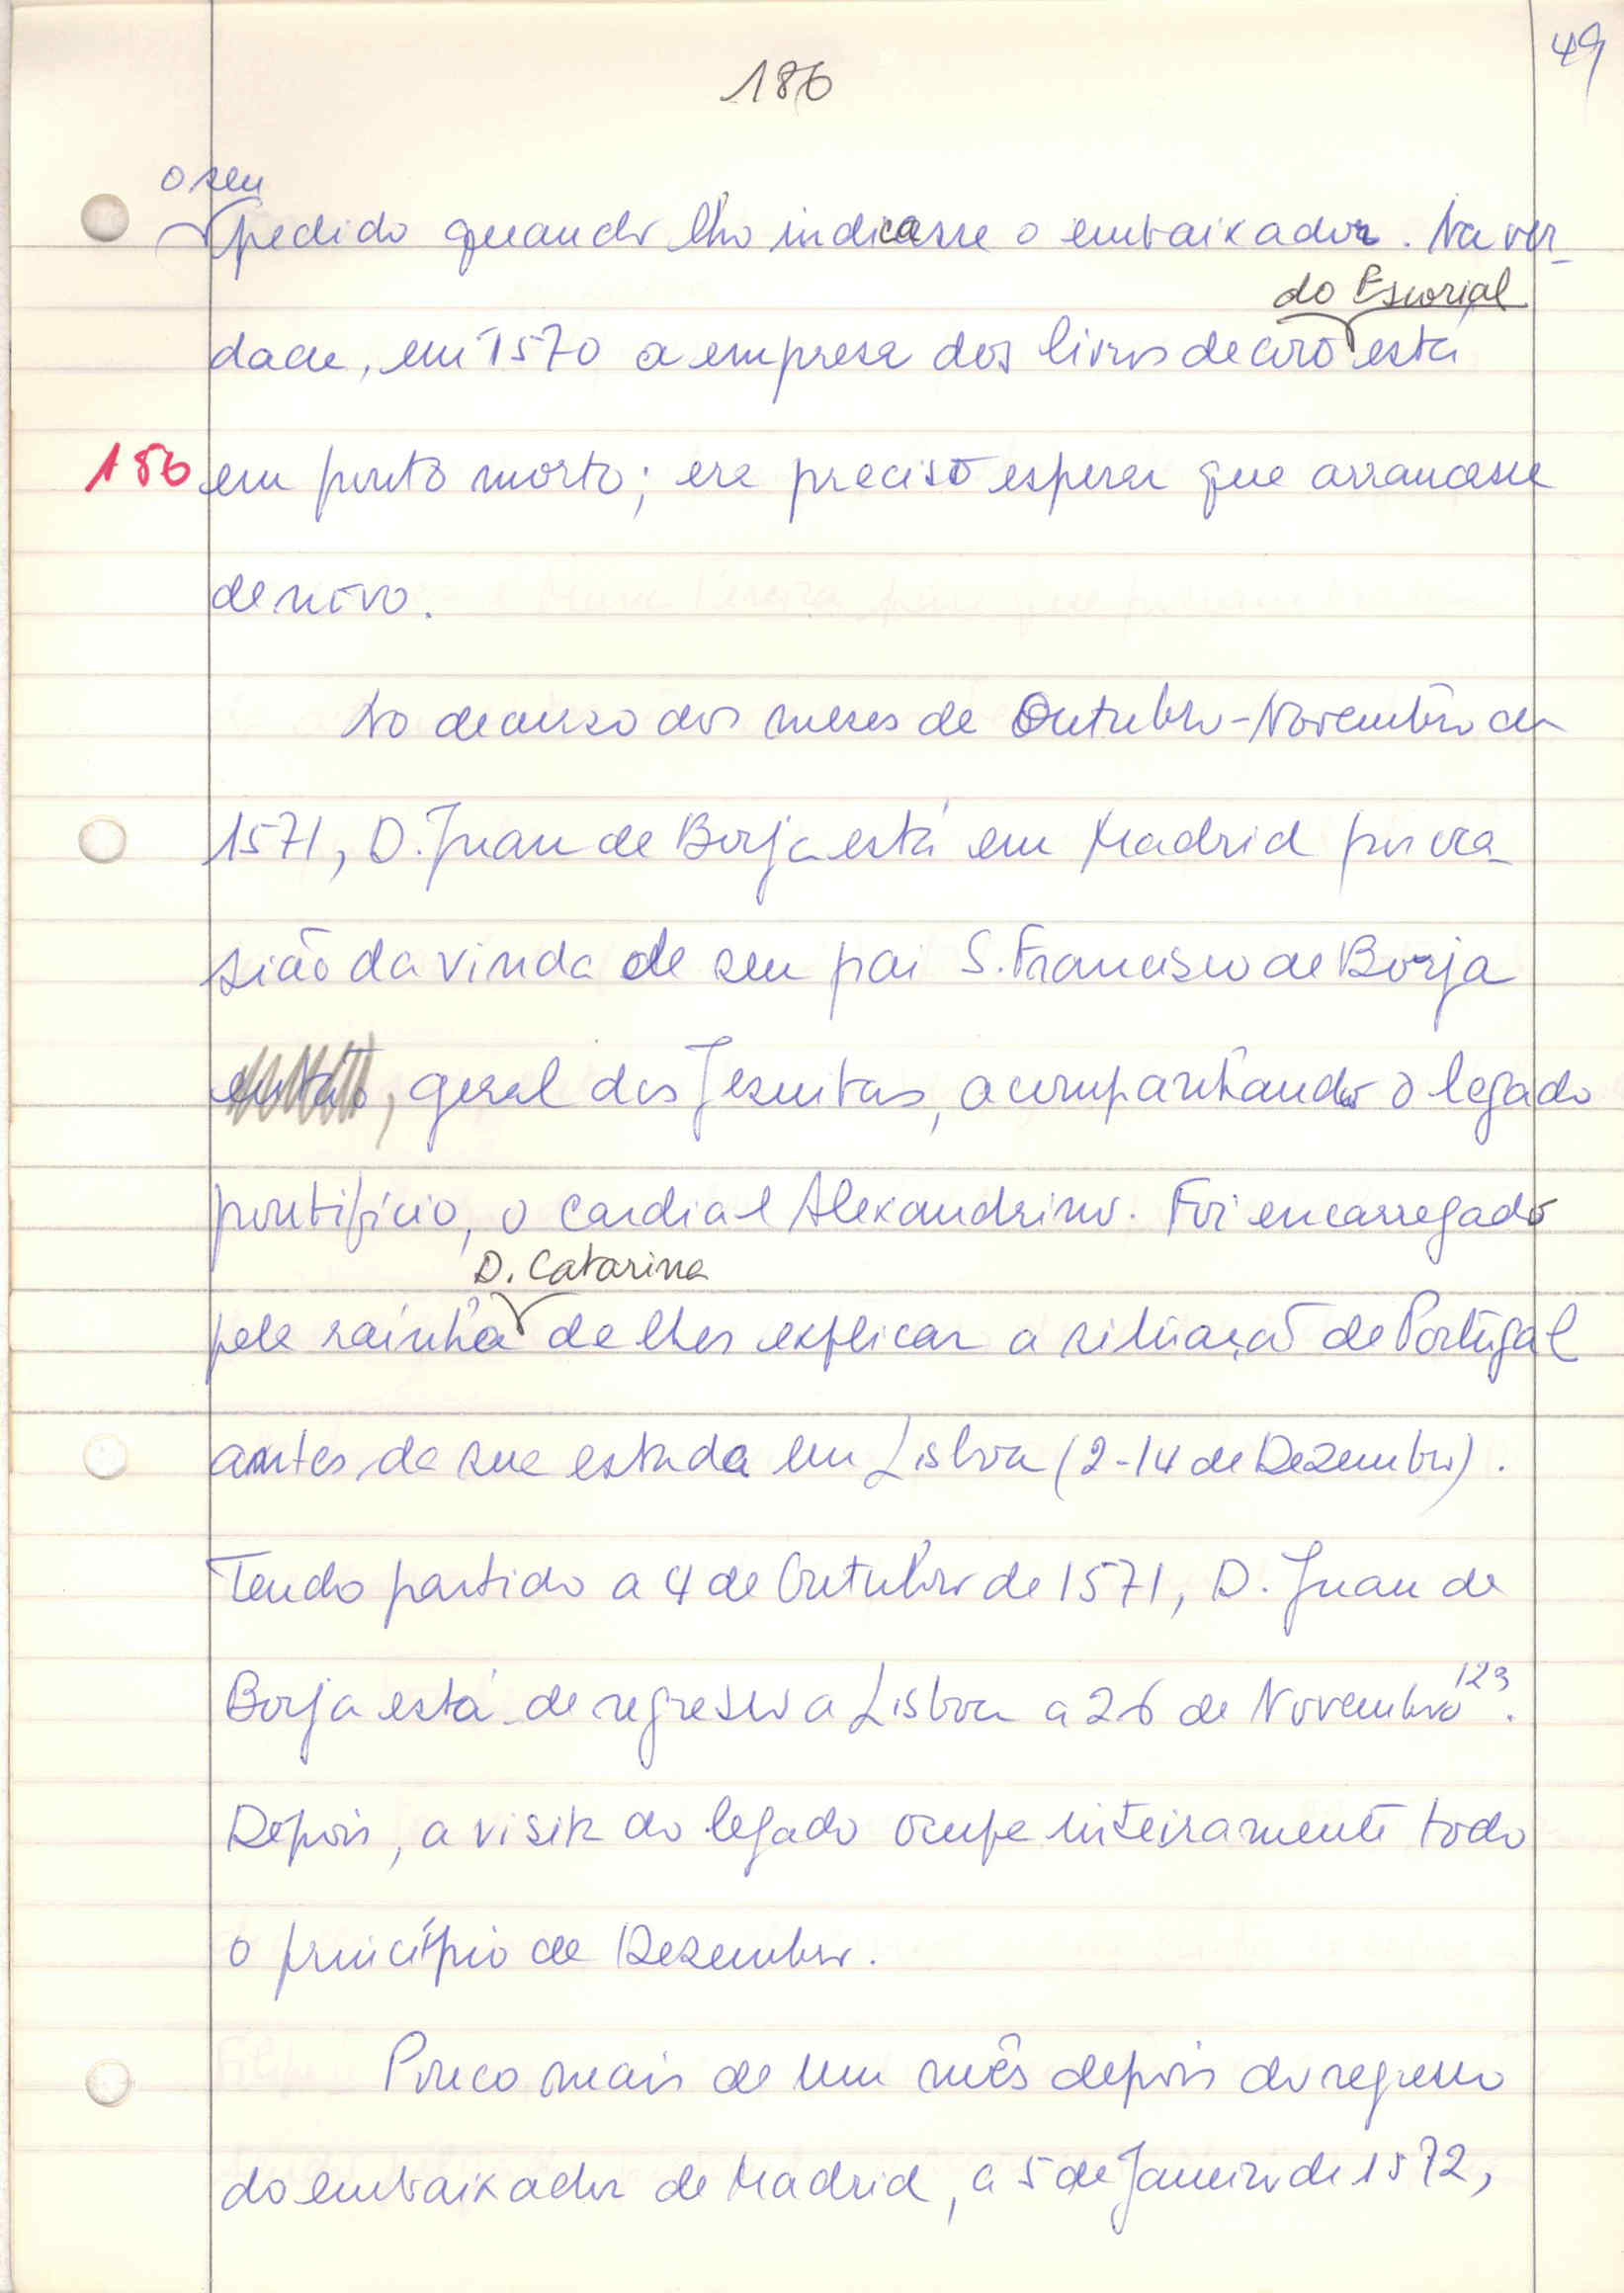 186
49
o seu
pedido quando lho indicasse o embaixador. Na ver-
do Escorial
dade, em 1570 a empresa dos livros de coro está
186
em ponto morto; era preciso esperar que arrancasse
de novo.
No decurso dos meses de Outubro-Novembro de
1571, D. Juan de Borja está em Madrid por oca-
sião da vinda de seu pai S. Francisco de Borja
então, geral dos Jesuitas, acompanhando o legado
pontifício, o cardial Alexandrino. Foi encarregado
D. Catarina
pela rainha de lhes explicar a situação de Portugal
antes da sua estada em Lisboa (2-14 de Dezembro).
Tendo partido a 4 de Outubro de 1571, D. Juan de
Borja está de regresso a Lisboa a 26 de Novembro 123.
Depois, a visita do legado ocupa inteiramente todo
o princípio de Dezembro.
Pouco mais de um mês depois do regresso
do embaixador de Madrid, a 5 de Janeiro de 1572,